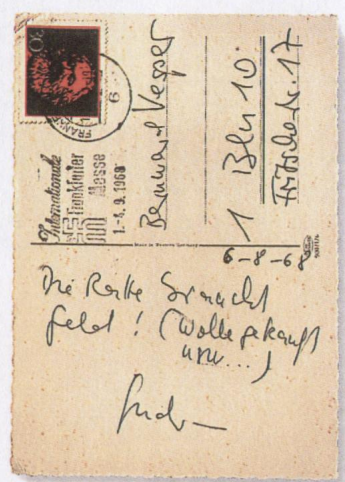 30
FRANKFURT
6
Internationale
Frankfurter
Messe
1.-4.9.1968
Bernward Vesper
1 Bln 10
Fritschestr. 17
6-8-68
Die Rente braucht
Geld! (Wolle gekauft
usw...)